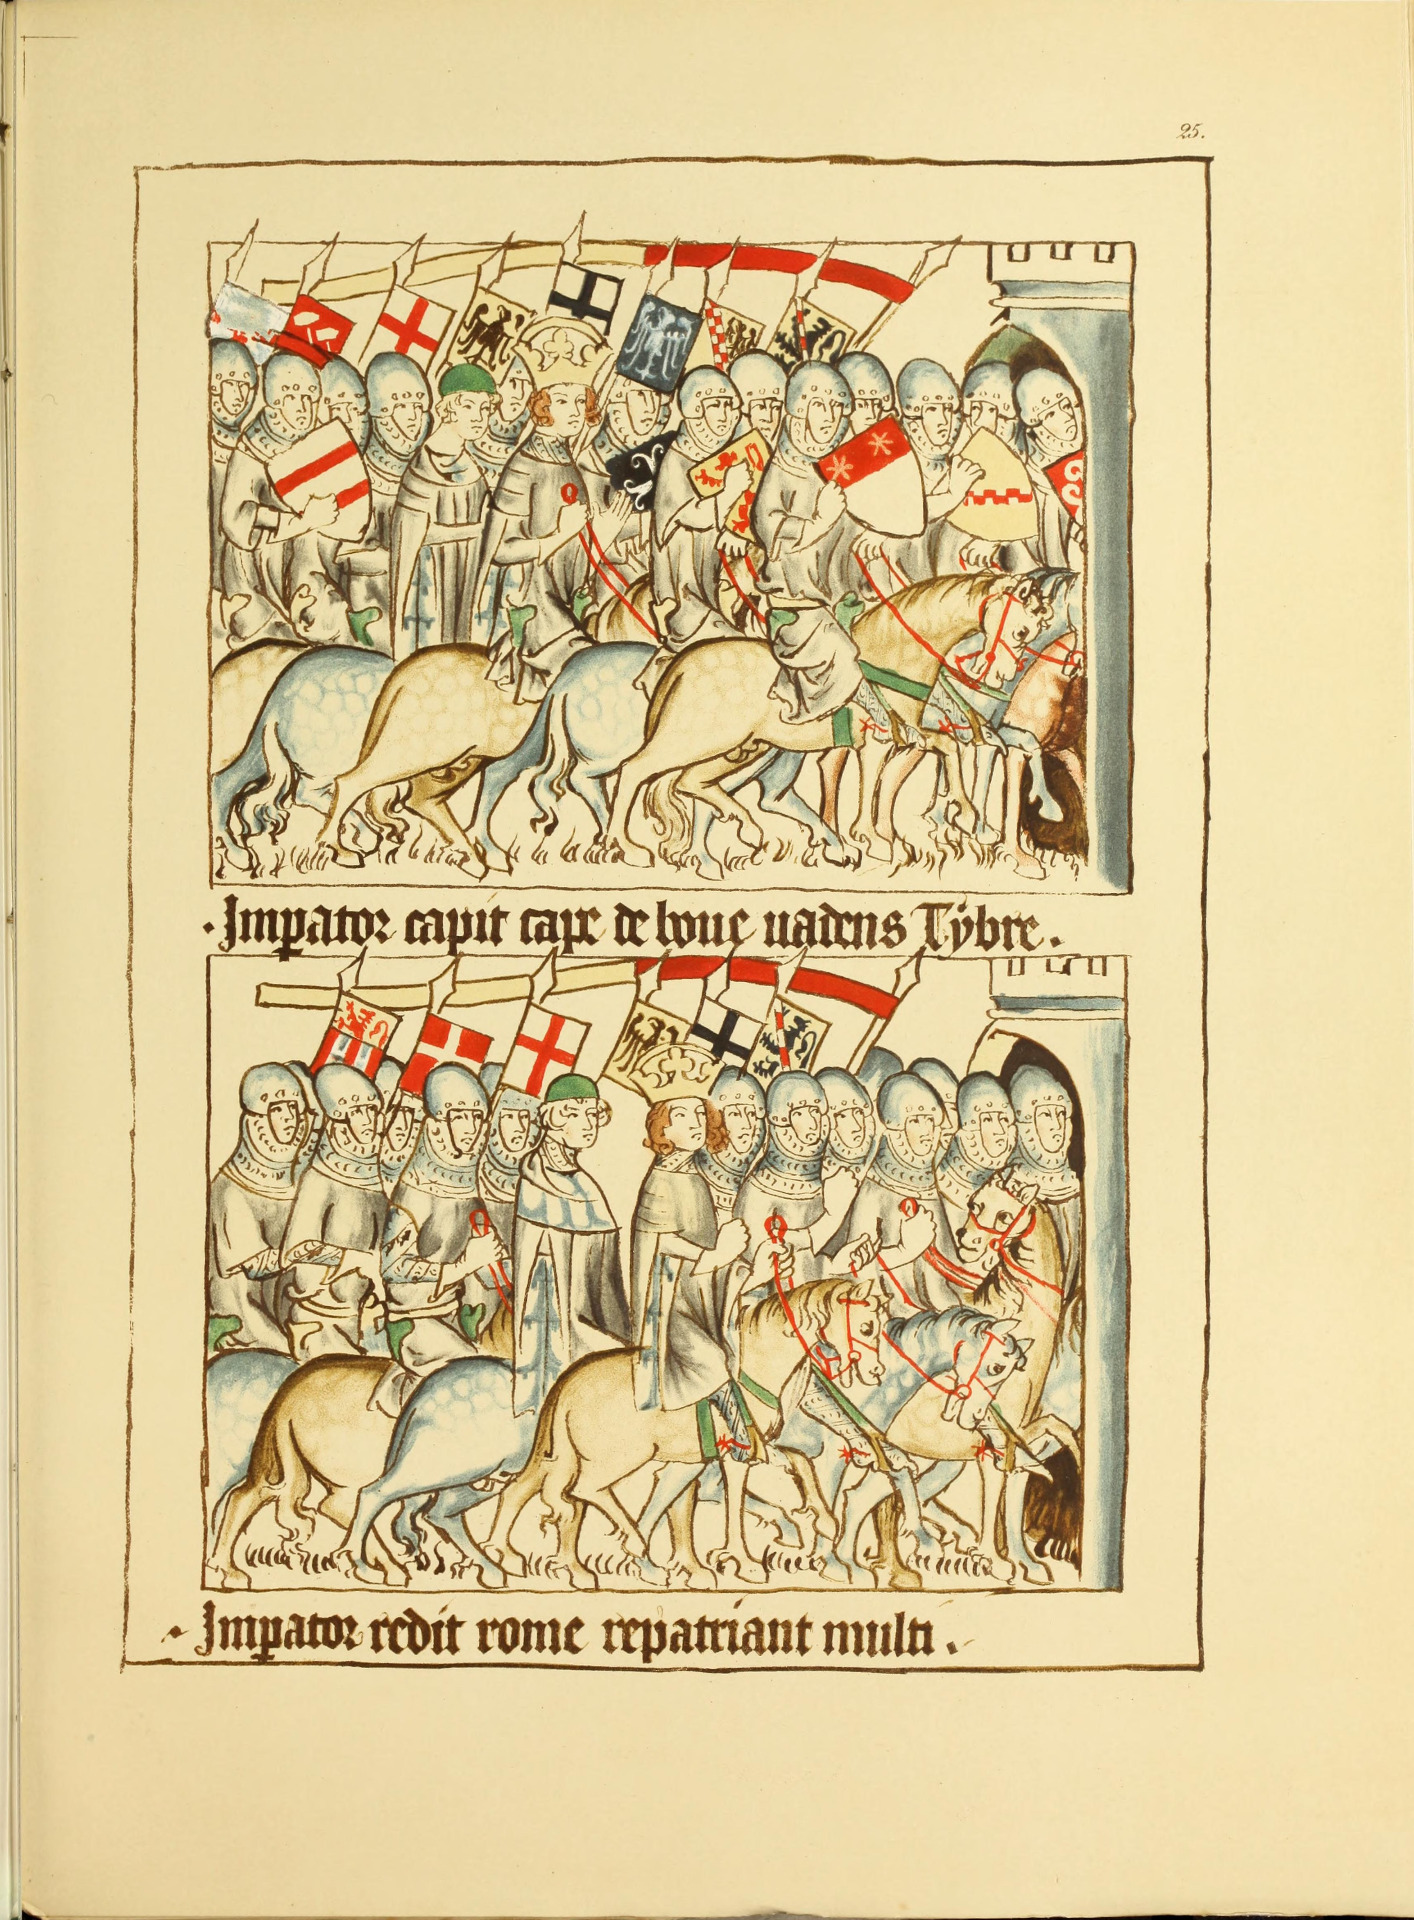 25.
· Imperator capit cape de boue uadens Tÿbre .
· Imperator redit rome repatriant multi .